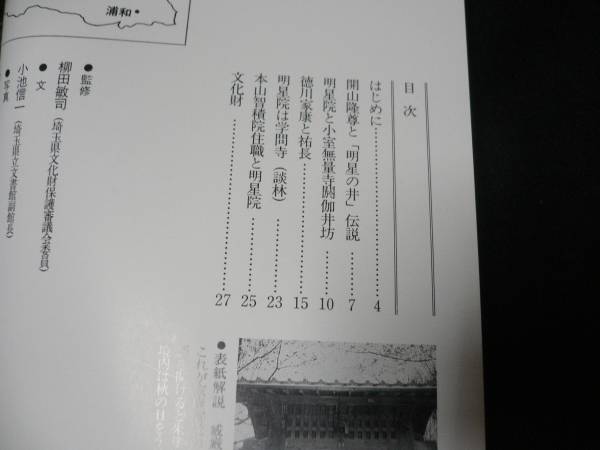 目次
はじめに…………4
開山隆尊と「明星の井」伝説……7
明星院と小室無量寺閼伽井坊……10
徳川家康と祐長…………15
明星院は学問寺（談林）…………23
本山智積院住職と明星院…………25
文化財…………27
●監修
柳田敏司（埼玉県文化財保護審議会委員）
●文
小池信一（埼玉県立文書館副館長）
●写真
浦和
●表紙解説